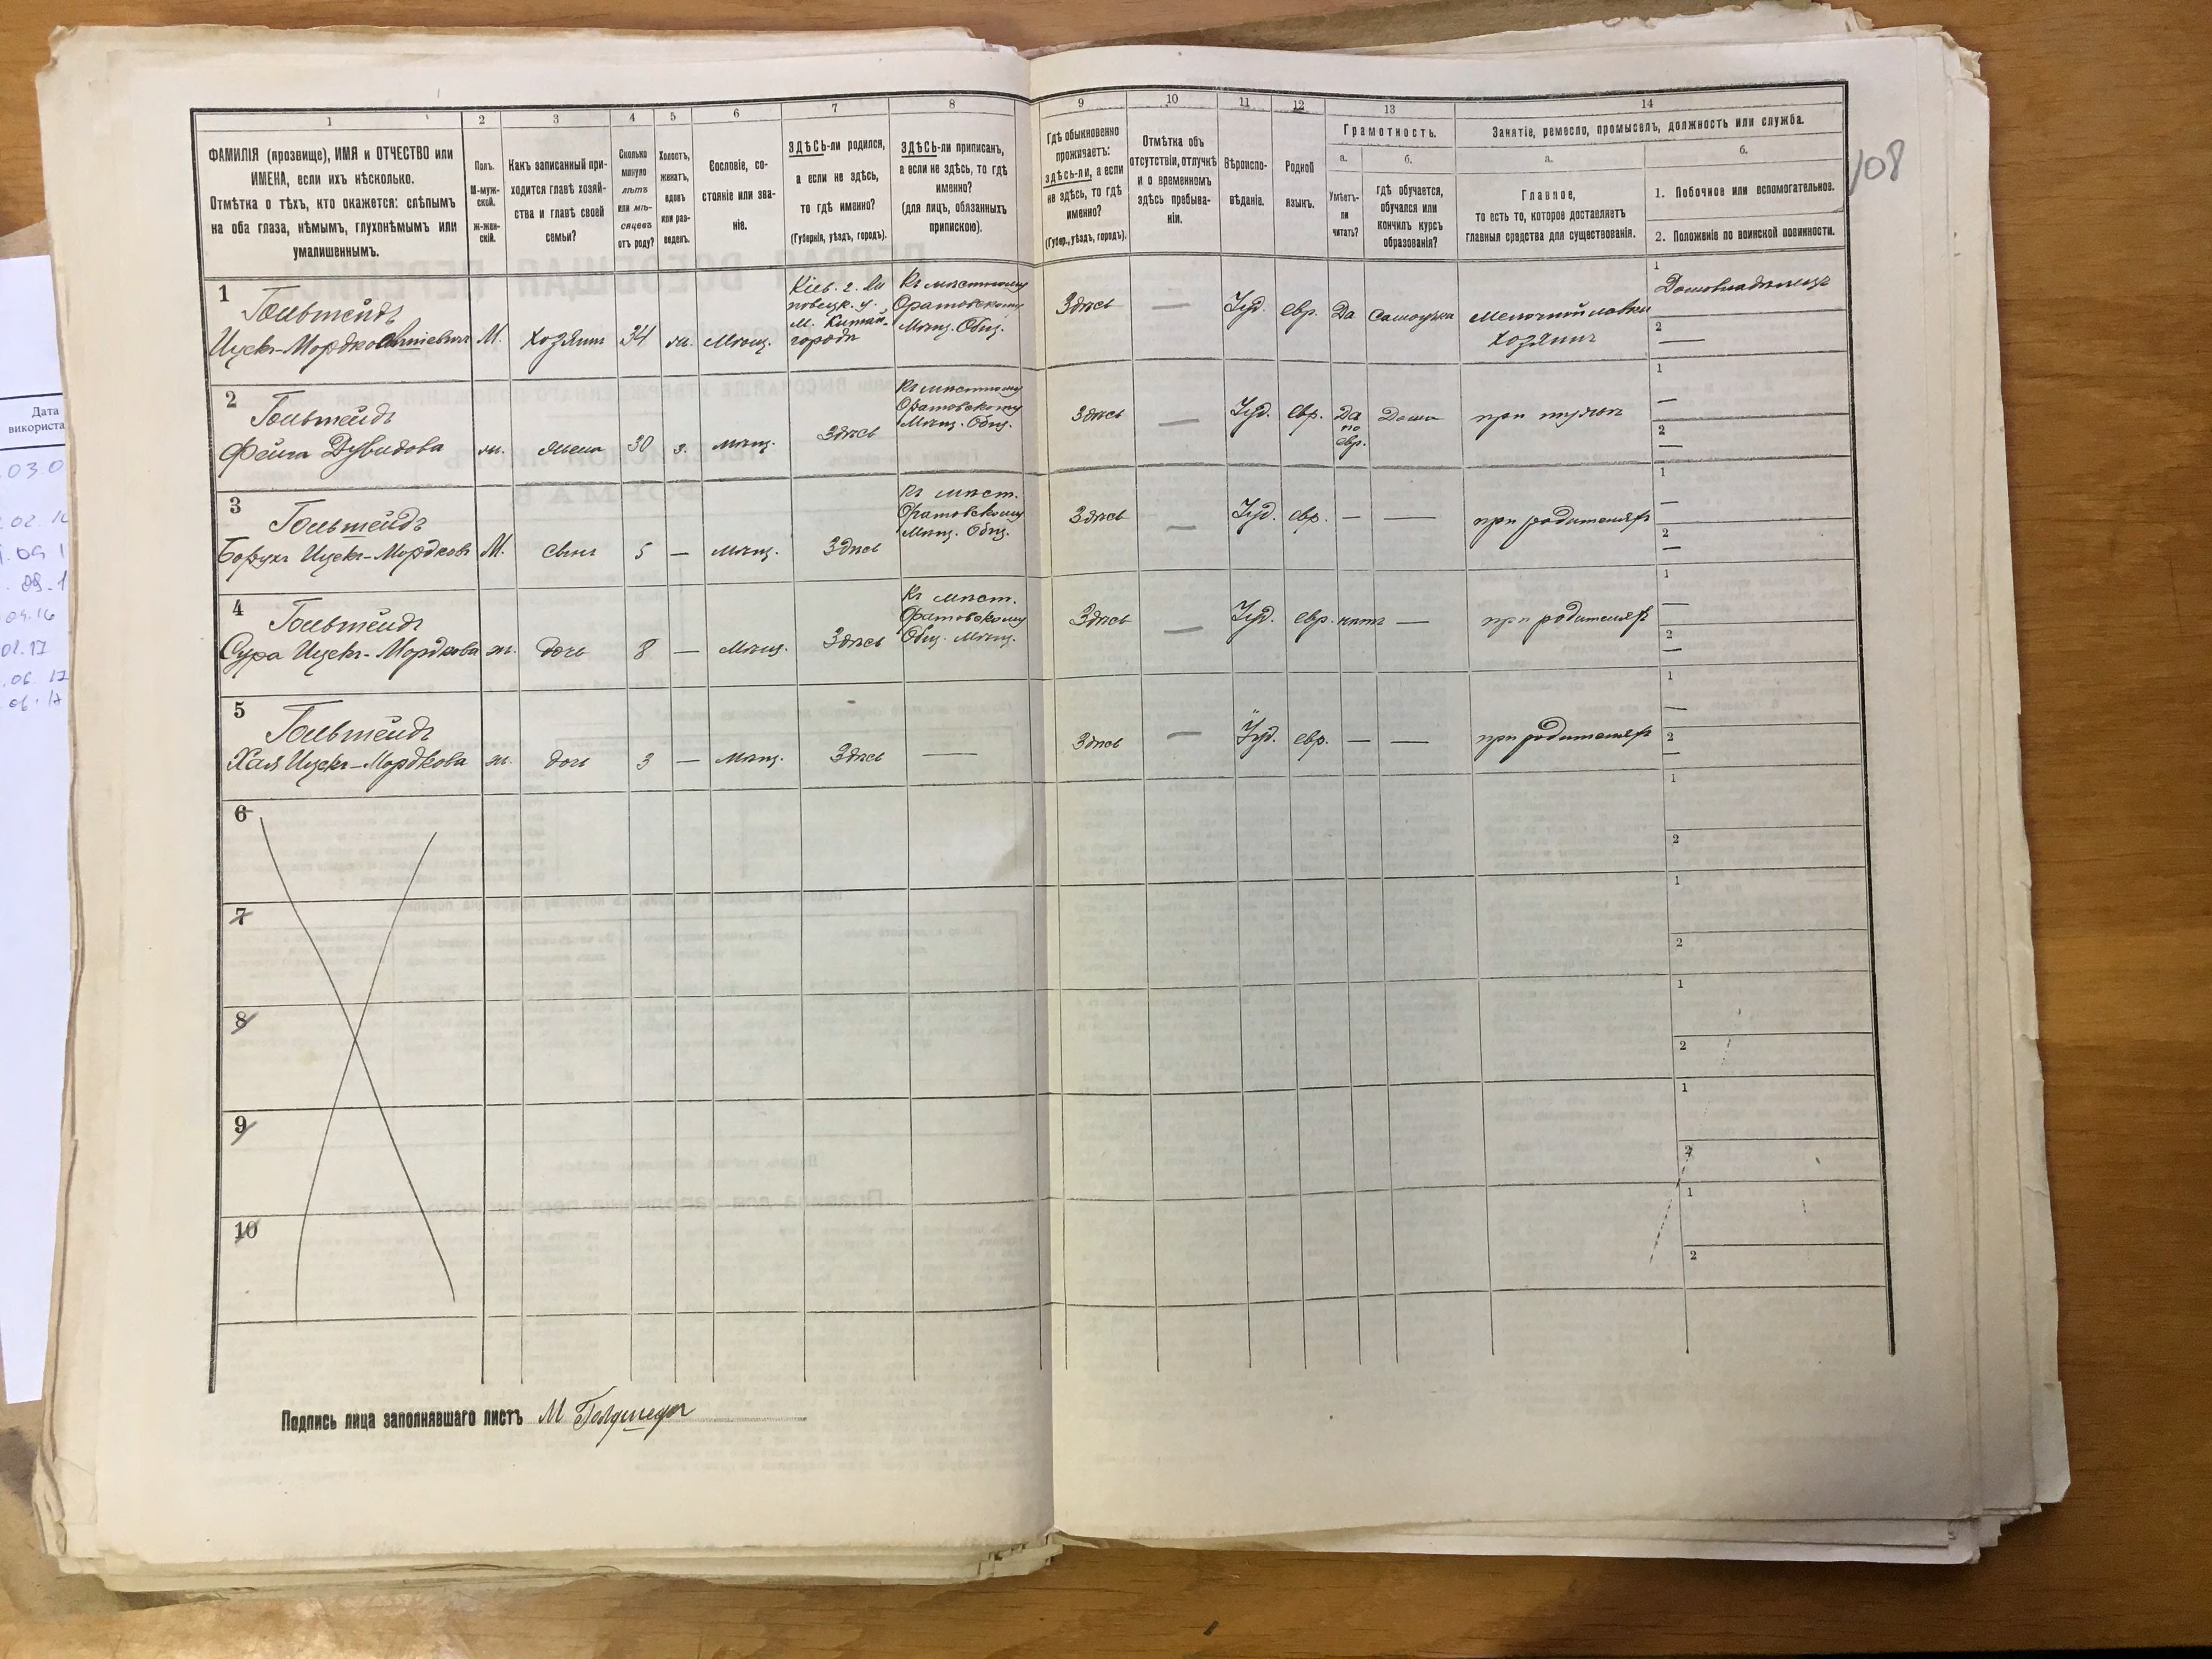 108
1
2
3
4
5
6
7
8
9
10
11
12
13
14
ФАМИЛІЯ (прозвище), ИМЯ и ОТЧЕСТВО или
ИМЕНА, если ихъ нѣсколько.
Отмѣтка о тѣхъ, кто окажется: слѣпымъ
на оба глаза, нѣмымъ, глухонѣмымъ или
умалишеннымъ.
Полъ.
М-муж-
ской.
Ж-жен-
скій.
Какъ записанный при-
ходится главѣ хозяй-
ства и главѣ своей
семьи?
Сколько
минуло
лѣтъ
или мѣ-
сяцевъ
отъ роду?
Холостъ,
женатъ,
вдовъ
или раз-
веденъ.
Сословіе, со-
стояніе или зва-
ніе.
ЗДѢСЬ-ли родился,
а если не здѣсь,
то гдѣ именно?
(Губернія, уѣздъ, городъ).
ЗДѢСЬ-ли приписанъ,
а если не здѣсь, то гдѣ
именно?
(для лицъ, обязанныхъ
припискою).
Гдѣ обыкновенно
проживаетъ:
здѣсь-ли, а если
не здѣсь, то гдѣ
именно?
(Губер., уѣздъ, городъ).
Отмѣтка объ
отсутствіи, отлучкѣ
и о временномъ
здѣсь пребыва-
ніи.
Вѣроиспо-
вѣданіе.
Родной
языкъ.
Грамотность.
а.
б.
Умѣетъ-
ли
читать?
гдѣ обучается,
обучался или
кончилъ курсъ
образованія?
Занятіе, ремесло, промыселъ, должность или служба.
а.
б.
Главное,
то есть то, которое доставляетъ
главныя средства для существованія.
1. Побочное или вспомогательное.
2. Положеніе по воинской повинности.
1
Гольтейдъ
Ицекъ-Мордко
М.
Хозяинъ
34
ж.
Мѣщ.
Кіев. г. Ли
повецк. у.
м. Китай-
города
Къ мѣстному
Оратовскому
Мѣщ. Общ.
Здѣсь
—
Іуд.
евр.
Да
самоучка
Мелочной лавки
хозяинъ
1
Домовладѣлецъ
2
—
2
Гольтейдъ
Фейга Дувидова
ж.
жена
30
з.
мѣщ.
Здѣсь
Къ мѣстному
Оратовскому
Мѣщ. Общ.
Здѣсь
—
Іуд.
евр.
Да
по
евр.
Дома
при мужѣ
1
—
2
—
3
Гольтейдъ
Борухъ Ицекъ-Мордковъ
М.
сынъ
5
—
мѣщ.
Здѣсь
Къ мѣст.
Оратовскому
Мѣщ. Общ.
Здѣсь
—
Іуд.
евр.
—
—
при родителяхъ
1
—
2
—
4
Гольтейдъ
Сура Ицекъ-Мордкова
ж.
дочь
8
—
Мѣщ.
Здѣсь
Къ мѣст.
Оратовскому
Общ. Мѣщ.
Здѣсь
—
Іуд.
евр.
нѣтъ
—
при родителяхъ
1
—
2
—
5
Гольтейдъ
Хая Ицекъ-Мордкова
ж.
дочь
3
—
мѣщ.
Здѣсь
—
Здѣсь
—
Іуд.
евр.
—
—
при родителяхъ
1
—
2
—
6
1
2
7
1
2
8
1
2
9
1
2
10
1
2
Подпись лица заполнявшаго листъ М
Дата
використа